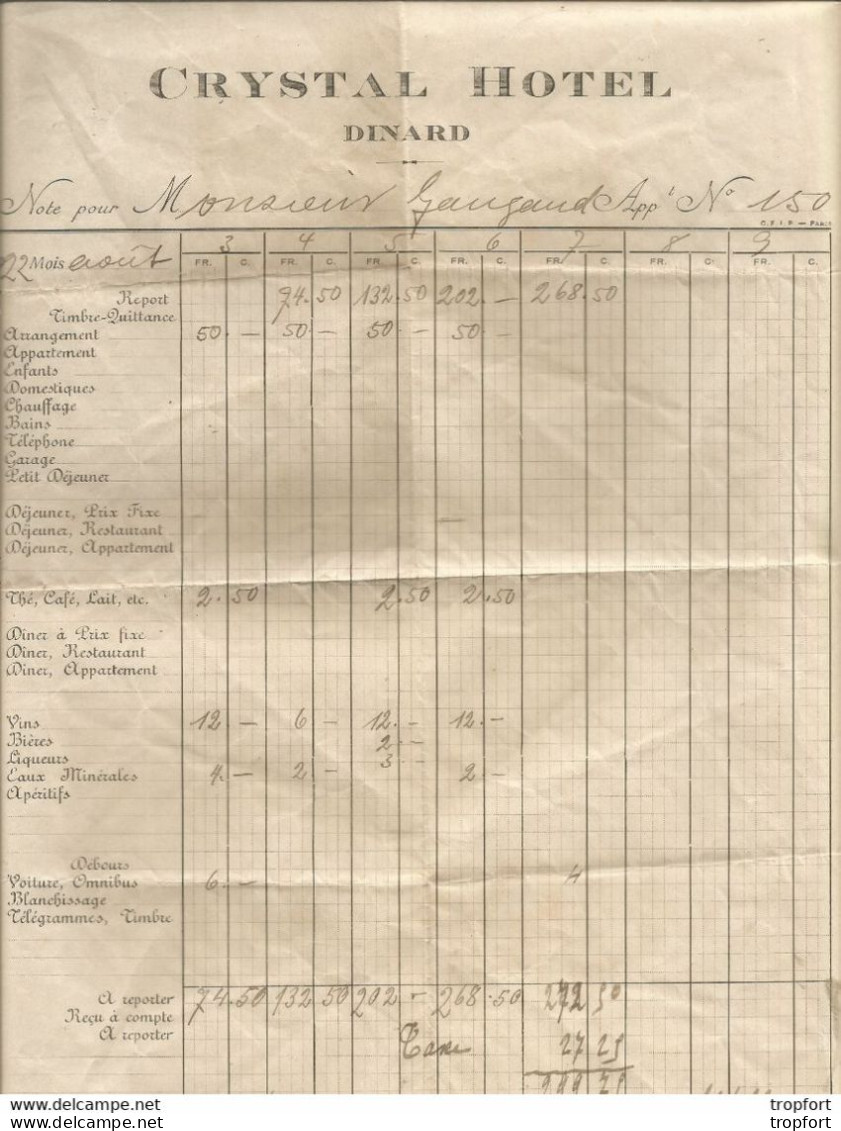 CRYSTAL HOTEL
DINARD
Note pour Monsieur Gaugaud Appt No 150
C.F.I.P. — PARIS
3 4 5 6 7 8 9
22 Mois août FR. C. FR. C. FR. C. FR. C. FR. C. FR. C. FR. C.
Report 74.50 132.50 202.— 268.50
Timbre-Quittance
Arrangement 50.— 50.— 50.— 50.—
Appartement
Enfants
Domestiques
Chauffage
Bains
Téléphone
Garage
Petit Déjeuner
Déjeuner, Prix Fixe
Déjeuner, Restaurant
Déjeuner, Appartement
Thé, Café, Lait, etc. 2.50 2.50 2.50
Dîner à Prix fixe
Dîner, Restaurant
Dîner, Appartement
Vins 12.— 6.— 12.— 12.—
Bières 2.—
Liqueurs 3.—
Eaux Minérales 4.— 2.— 2.—
Apéritifs
Débours
Voiture, Omnibus 6.— 4
Blanchissage
Télégrammes, Timbre
A reporter 74.50 132.50 202.— 268.50 272 50
Reçu à compte
A reporter Taxe 27 25
299 75
tropfort
tropfort
www.delcampe.net
www.delcampe.net